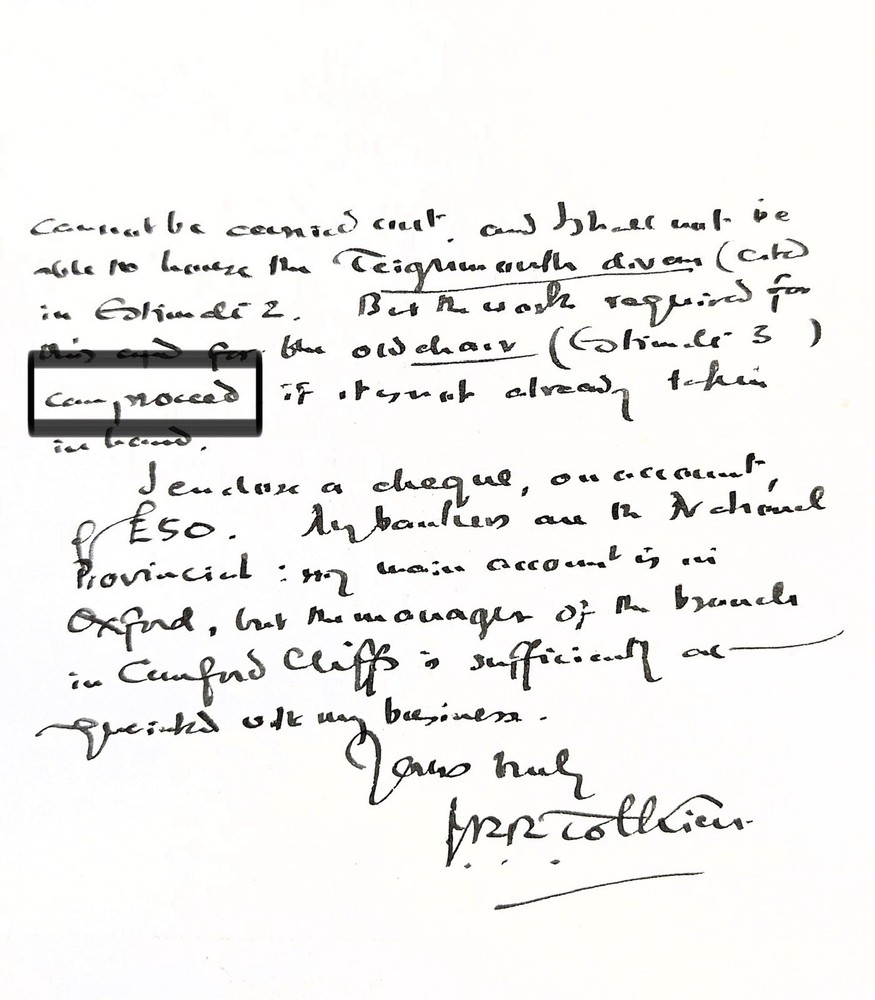 cannot be carried out, and I shall not be
able to house the Teignmouth divan (cited
in Estimate 2. But the work required for
this and for the old chair (Estimate 3 )
can proceed if it is not already taken
in hand.
I enclose a cheque, on account,
of £50. My bankers are the National
Provincial : my main account is in
Oxford, but the manager of the branch
in Canford Cliffs is sufficiently ac-
quainted with my business.
Yours truly
JRRTolkien